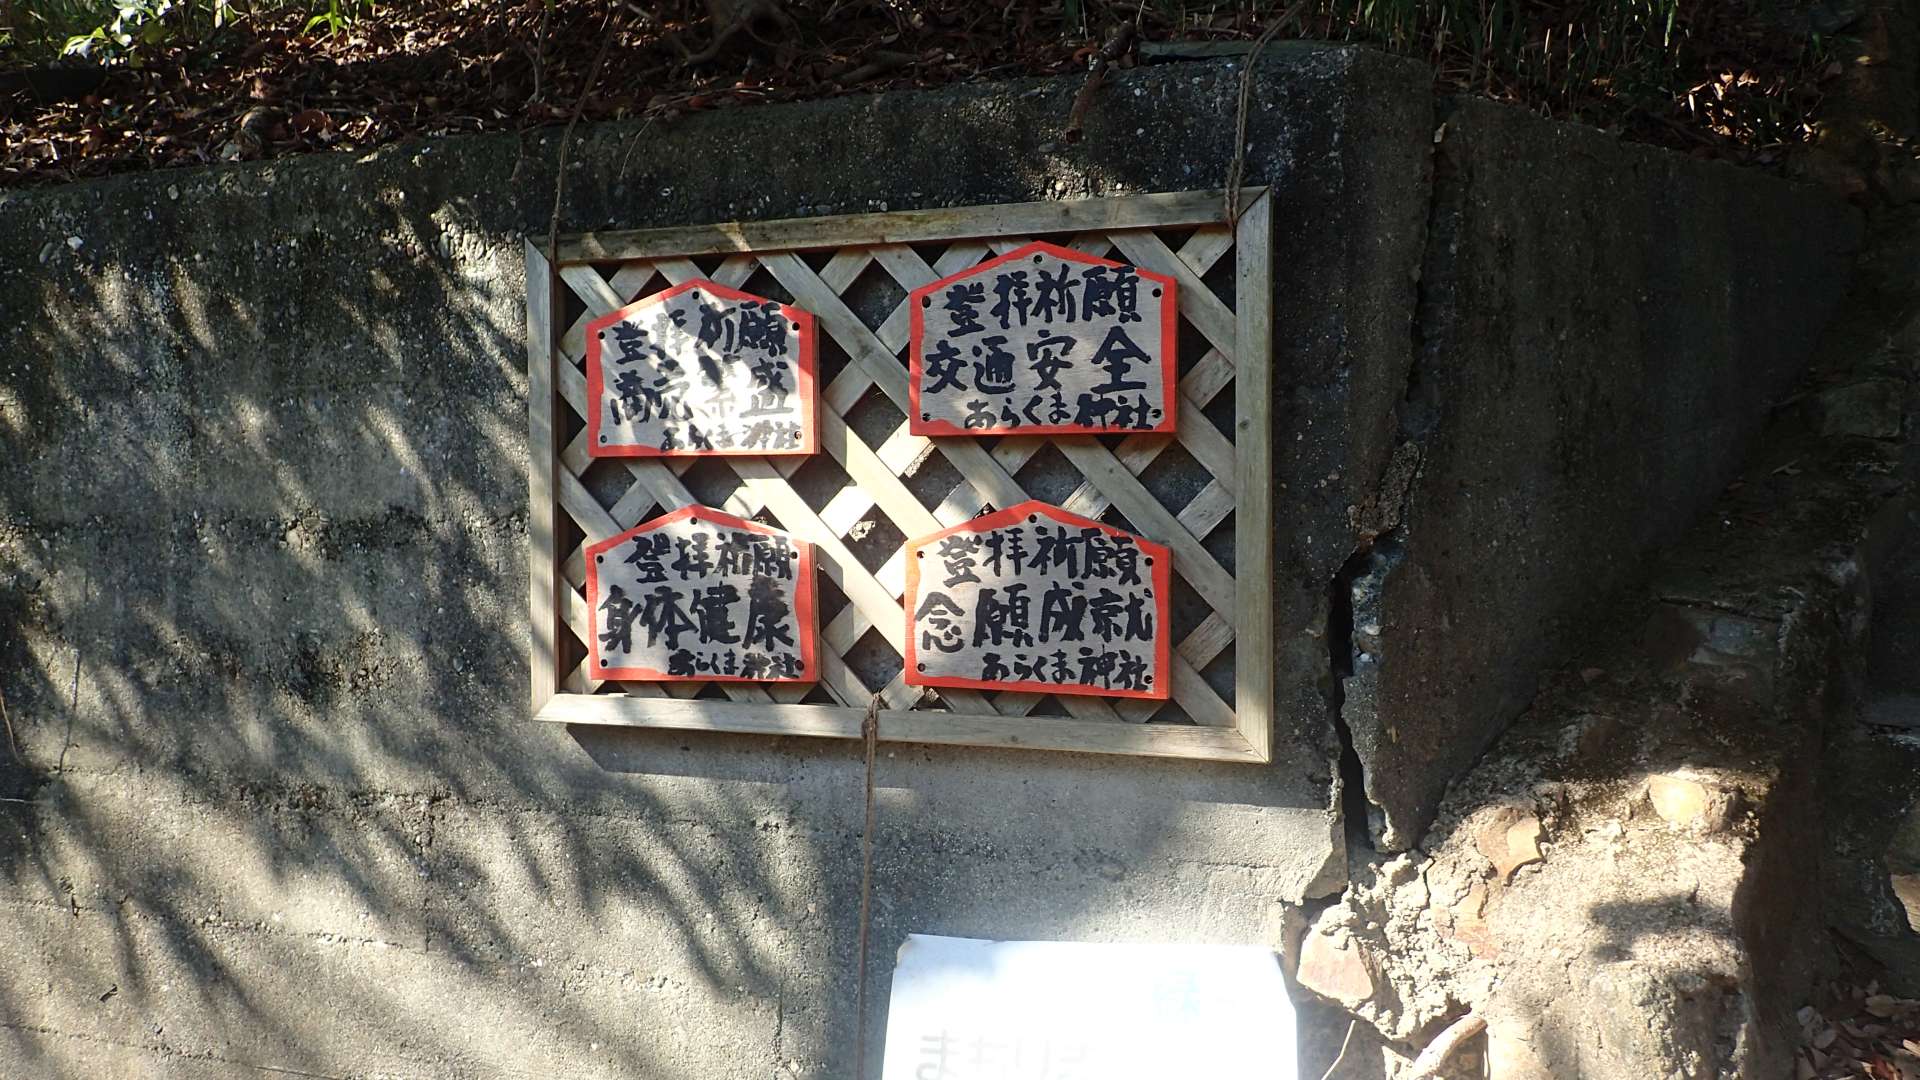 登拝祈願
商売繁盛
あらくま神社
登拝祈願
交通安全
あらくま神社
登拝祈願
身体健康
あらくま神社
登拝祈願
念願成就
あらくま神社